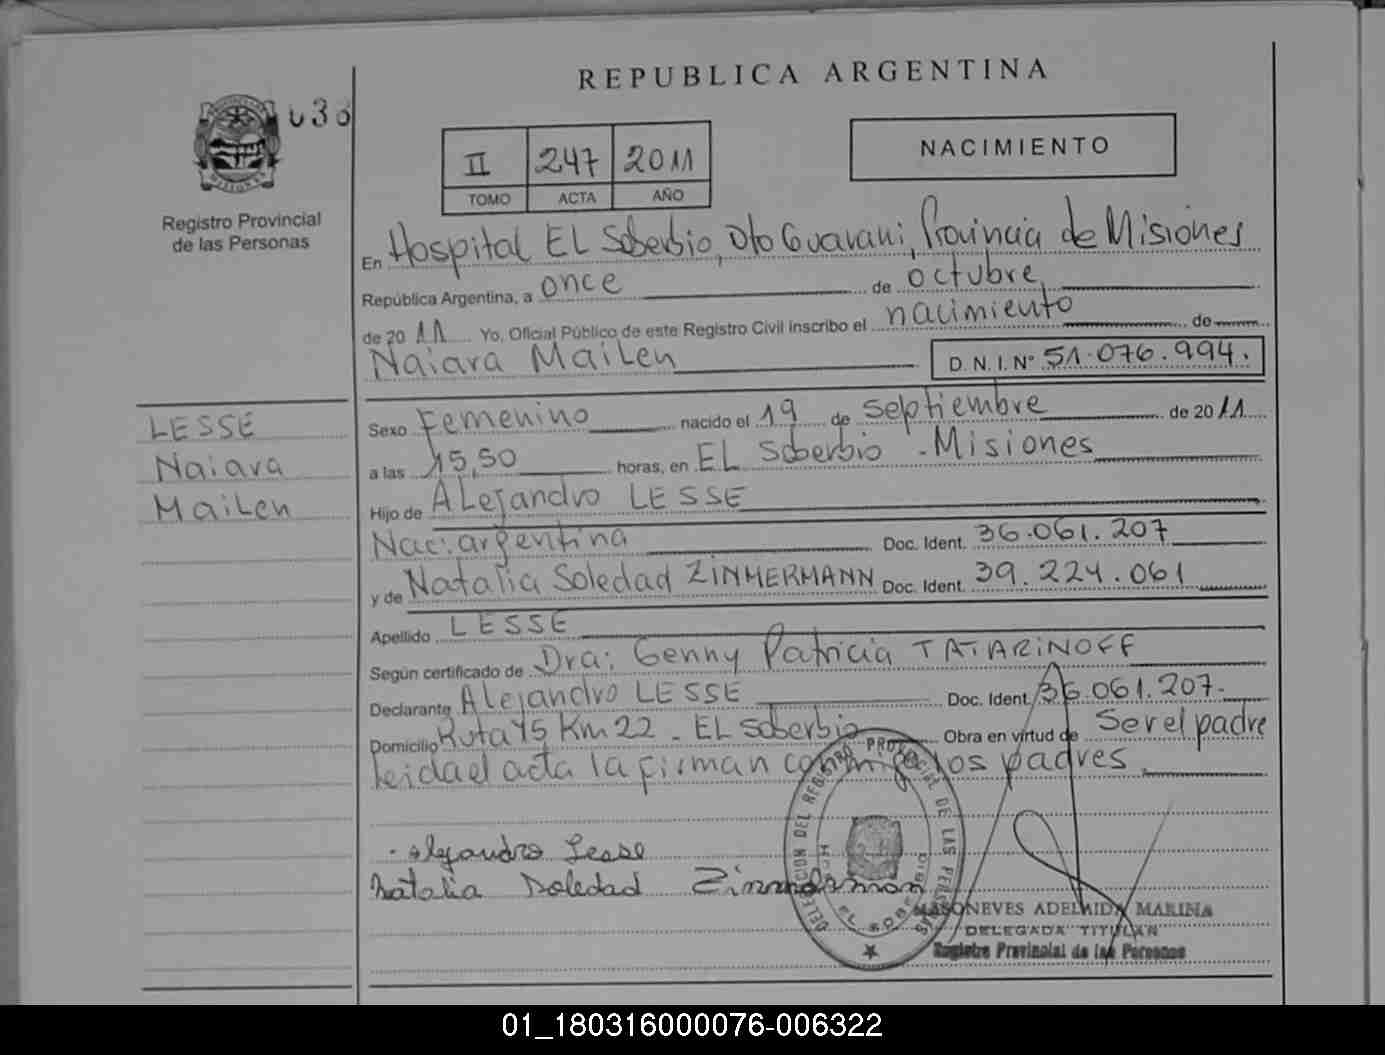 REPUBLICA ARGENTINA
038
II 247 2011
TOMO ACTA AÑO
NACIMIENTO
Registro Provincial
de las Personas
En Hospital EL Soberbio, Dto Guarani, Provincia de Misiones
República Argentina, a once de octubre
de 2011 Yo, Oficial Público de este Registro Civil inscribo el nacimiento de
Naiara MaiLen D.N.I.Nº 51.076.994.
LESSE
Naiara
MaiLen
Sexo Femenino nacido el 19 de septiembre de 2011
a las 15,50 horas, en EL Soberbio - Misiones
Hijo de ALejandro LESSE
Nac: argentina Doc. Ident. 36.061.207
y de Natalia Soledad ZINMERMANN Doc. Ident. 39.224.061
Apellido LESSE
Según certificado de Dra: Genny Patricia TATARINOFF
Declarante ALejandro LESSE Doc. Ident. 36.061.207.
Domicilio Ruta 15 Km 22 - EL Soberbio Obra en virtud de Ser el padre
leida el acta la firman conmigo los padres
Alejandro Lesse
Natalia Soledad Zinmerman
DELEGACION DEL REGISTRO PROVINCIAL DE LAS PERSONAS
EL SOBERBIO
MASONEVES ADELAIDA MARINA
DELEGADA TITULAR
Registro Provincial de las Personas
01_180316000076-006322